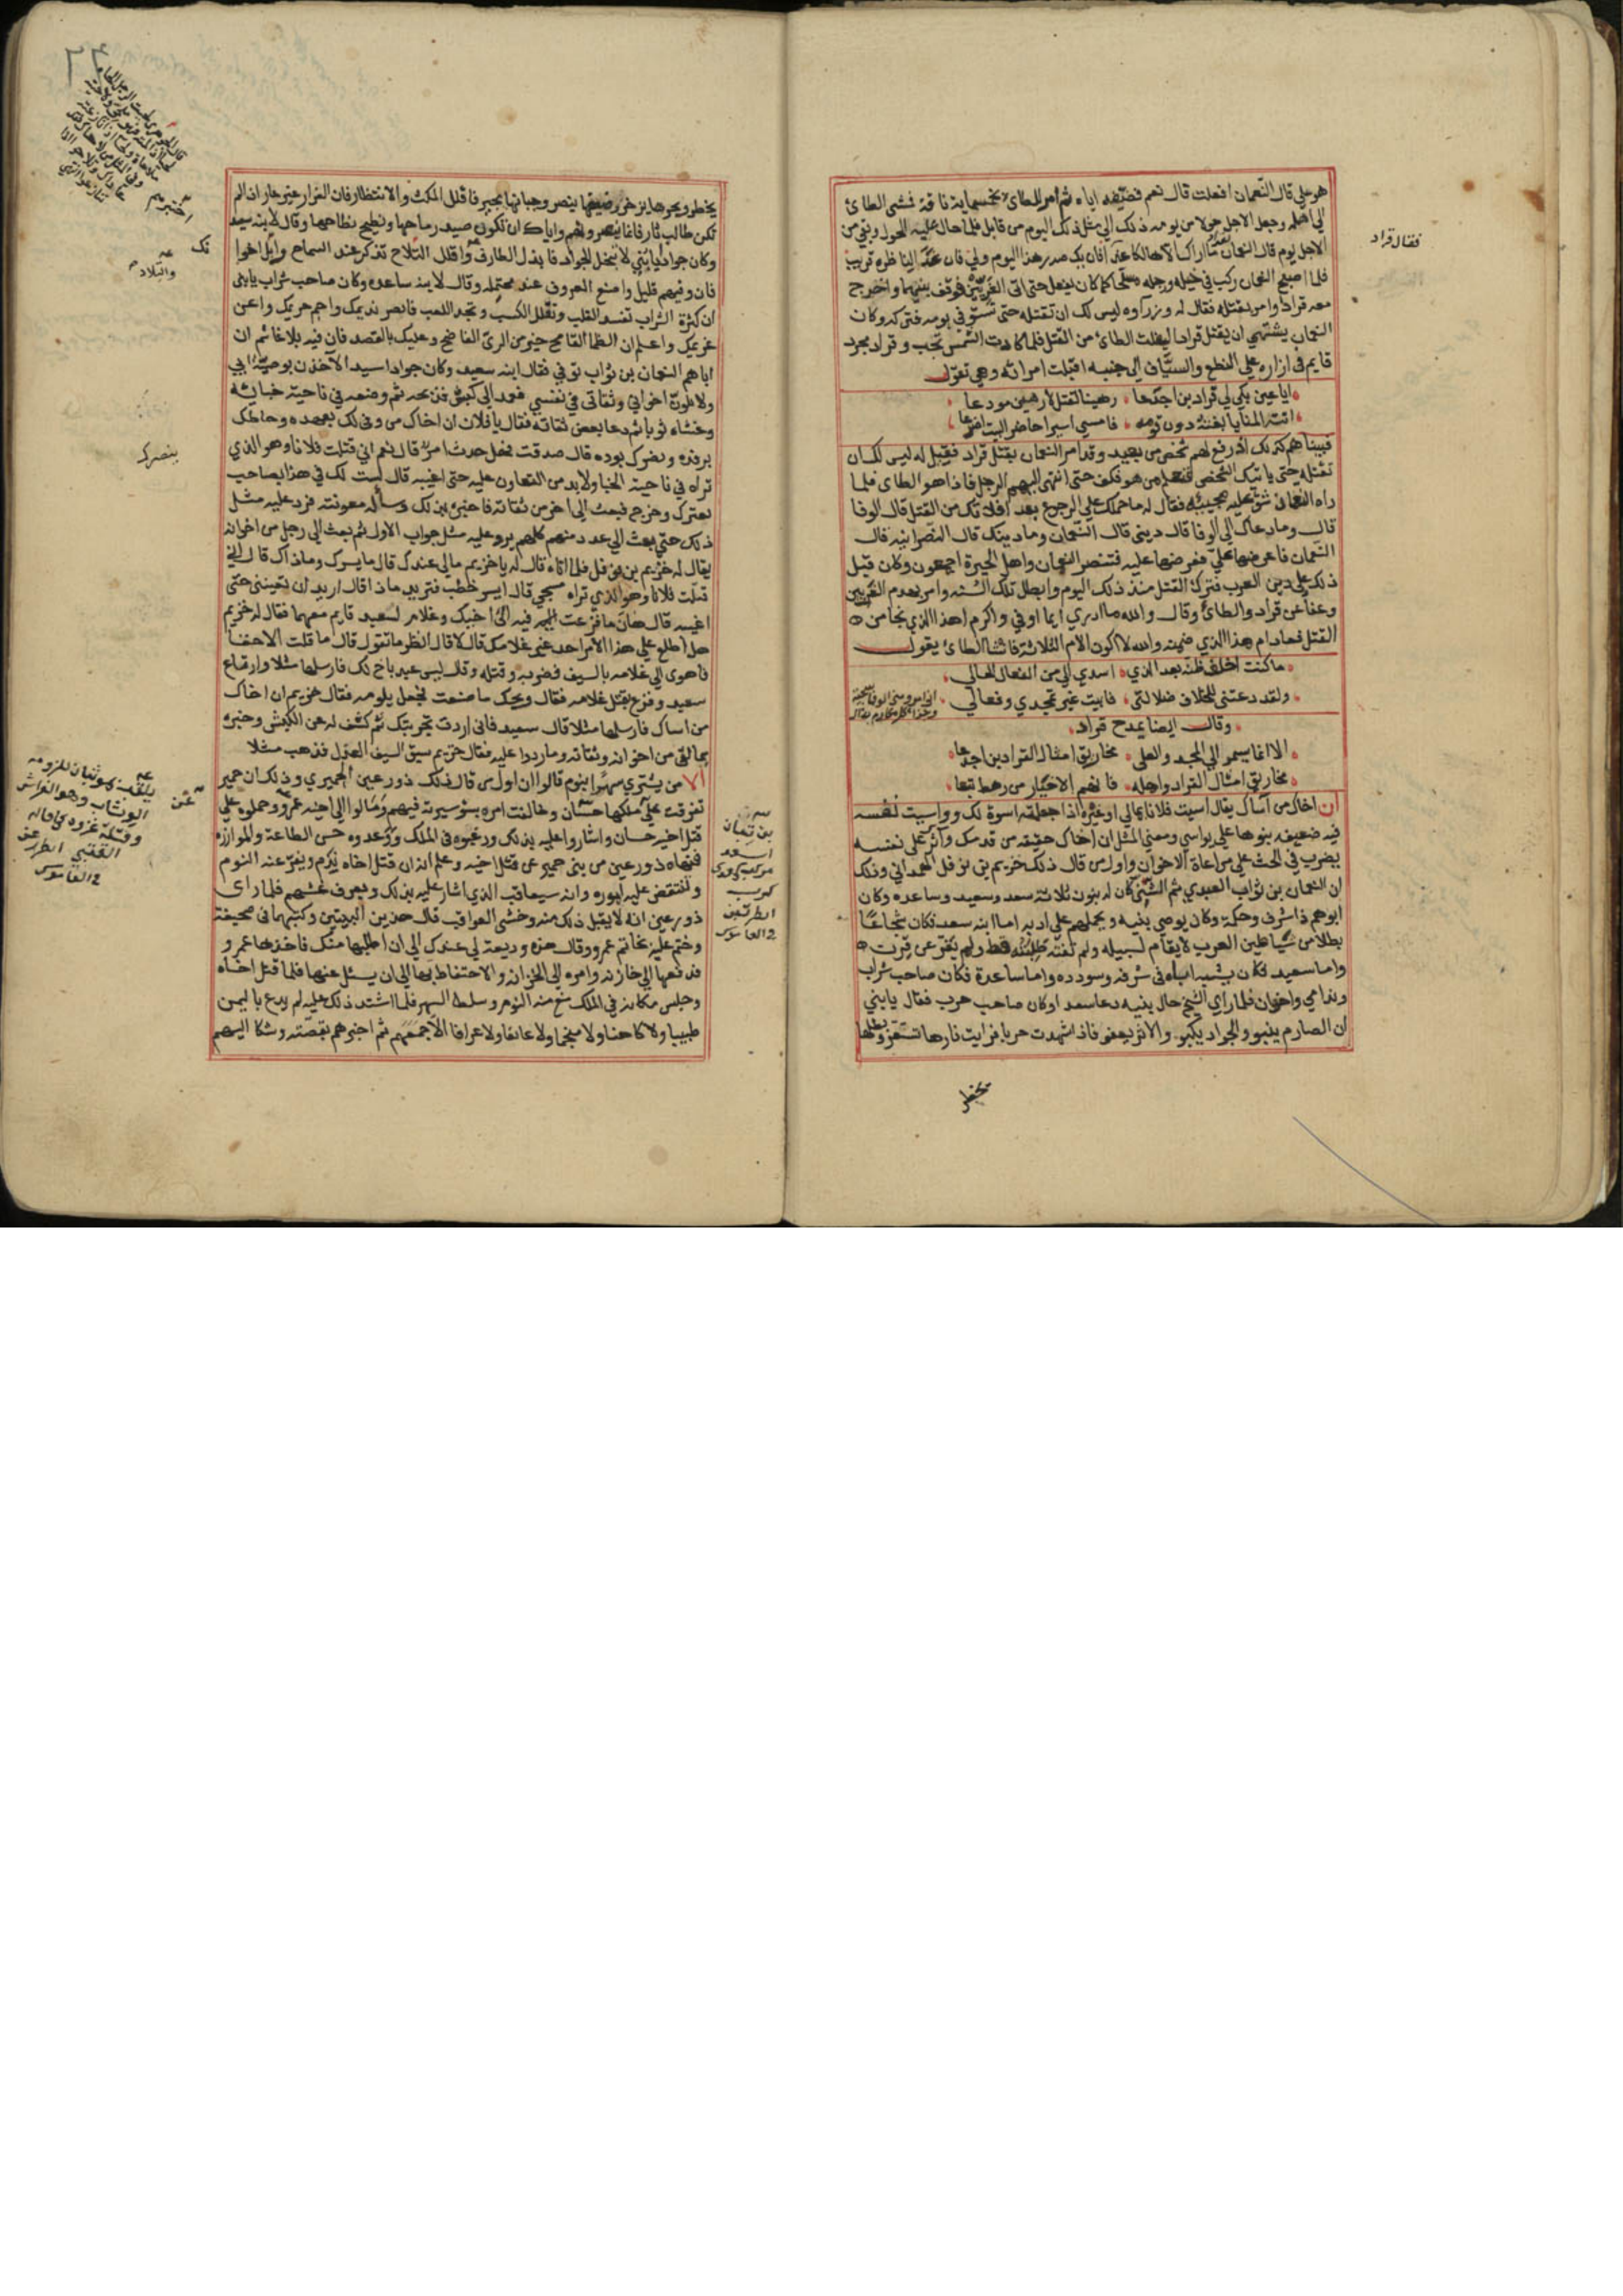 هو علي قال النعمان افعلت قال نعم فضمنه اياه ثم امر للطائ بخمسماية ناقة فمضى الطائ
الي اهله وجعل الاجل حولا من يومه ذلك الي مثل ذلك اليوم من قابل فلما حال عليه الحول وبقي من
الاجل يوم قال النعمان لقراد ما اراك الا هالكا غدا
فقال قراد
فان يك صدر هذا اليوم ولي فان غدا لناظره قريب
فلما اصبح النعمان ركب في خيله ورجله متسلحا كما كان يفعل حتى اتى الغريين فوقف بينهما واخرج
معه قرادا وامر بقتله فقال له وزراوه ليس لك ان تقتله حتى يستوفي يومه فتركه وكان
النعمان يشتهي ان يقتل قرادا ليفلت الطائ من القتل فلما كادت الشمس تجب وقراد مجرد
قايم في ازاره علي النطع والسياف الى جنبه اقبلت امراته وهي تقول
ايا عين بكي لي قراد بن اجدعا رهينا لقتل لا رهين مودعا
اتته المنايا بغتة دون قومه فامسي اسيرا حاضر البيت اضرعا
فبينا هم كذلك اذ رفع لهم شخص من بعيد وقد امر النعمان بقتل قراد فقيل له ليس لك ان
تقتله حتى ياتيك الشخص فتعلم من هو فكف حتى انتهى اليهم الرجل فاذا هو الطاى فلما
راه النعمان شق عليه مجيئه فقال له ما حملك علي الرجوع بعد افلاتك من القتل قال الوفا
قال وما دعاك الي الوفا قال ديني قال النعمان وما دينك قال النصرانيه قال
النعمان فاعرضها علي فعرضها عليه فتنصر النعمان واهل الحيرة اجمعون وكان قبل
ذلك على دين العرب فترك القتل منذ ذلك اليوم وابطل تلك السنه وامر بهدم الغريين
وعفا عن قراد والطائ وقال والله ما ادري ايما اوفي واكرم اهذا الذي نجا من
القتل فعاد ام هذا الذي ضمنه والله لا اكون الام الثلاثة فانشا الطائ يقول
ما كنت اخلف ظنه بعد الذي اسدى الي من الفعال الخالي
ولقد دعتني للخلاف ضلالتي فابيت غير تمجدي وفعالي
اني امرو مني الوفا سجية
وقال ايضا يمدح قراد
الا انما يسمو الي المجد والعلى مخاريق امثال القراد بن اجدعا
مخاريق امثال القراد واهله فانهم الاخيار من رهط تبعا
ان اخاك من آساك يقال آسيت فلانا بمالي او غيره اذا جعلته اسوة لك وواسيت لغة
فيه ضعيفه بنوها علي يواسي ومعني المثل ان اخاك حقيقة من قدمك وآثرك على نفسه
يضرب في الحث علي مراعاة الاخوان واول من قال ذلك خزيم بن نوفل الهمداني وذلك
ان النعمان بن ثواب العبدي ثم الشني كان له بنون ثلاثة سعد وسعيد وساعده وكان
ابوهم ذا شرف وحكمة وكان يوصي بنيه ويحملهم على ادبه اما ابنه سعد فكان شجاعا
بطلا من شياطين العرب لا يقام لسبيله ولم تفته طلبته قط ولم يفر عن قرن
واما سعيد فكان يشبه اباه في شرفه وسودده واما ساعدة فكان صاحب شراب
وندامي واخوان فلما راي الشيخ حال بنيه دعا سعدا وكان صاحب حرب فقال يا بني
ان الصارم ينبو والجواد يكبو والاثر يعفو فاذا شهدت حربا فرايت نارها تستعر وبطلها
يخطر
يخطر وبحرها يزخر وضعيفها ينصر وجبانها يجسر فاقلل المكث والانتظار فان الفرار غير عار اذا لم
تكن طالب ثار فانما ينصرون هم واياك ان تكون صيد رماحها ونطيح نطاحها وقال لابنه سعيد
وكان جوادا يا بني لا يبخل الجواد فابذل الطارف
والتلاد
واقلل التلاح تذكر عند السماح وابل اخوانك
فان وفيهم قليل واصنع المعروف عند محتمله وقال لابنه ساعده وكان صاحب شراب يا بني
ان كثرة الشراب تفسد القلب وتقلل الكسب وتجد اللعب فابصر نديمك واحم حريمك واعن
غريمك واعلم ان الظما القامح خير من الري الفاضح وعليك بالقصد فان فيه بلاغا ثم ان
اباهم النعمان بن ثواب توفي فقال ابنه سعيد وكان جوادا سيدا لآخذن بوصية ابي
ولابلون اخواني وثقاتى في نفسي فعمد الى كبش فذبحه ثم وضعه في ناحية خبائه
وغشاه ثوبا ثم دعا بعض ثقاته فقال يا فلان ان اخاك من وفى لك بعهده وحاطك
برفده ونصرك بوده قال صدقت فهل حدث امر قال نعم اني قتلت فلانا وهو الذي
بنصرك
تراه في ناحية الخبا ولا بد من التعاون عليه حتى اغيبه قال لست لك في هذا بصاحب
فتركه وخرج فبعث الى اخر من ثقاته فاخبره بذلك وساله معونته فرد عليه مثل
ذلك حتى بعث الي عدد منهم كلهم يرد عليه مثل جواب الاول ثم بعث الي رجل من اخوانه
يقال له خزيم بن نوفل فلما اتاه قال له يا خزيم مالي عندك قال ما يسرك وما ذاك قال اني
قتلت فلانا وهو الذي تراه مسجي قال ايسر خطب فتريد ماذا قال اريد ان تعينني حتى
اغيبه قال هان ما فزعت فيه الى اخيك وغلام لسعيد قايم معهما فقال له خزيم
هل اطلع علي هذا الامر احد غير غلامك قال لا قال انظر ما تقول قال ما قلت الا حقا
فاهوى الي غلامه بالسيف فضربه وقتله وقال ليس عبد باخ لك فارسلها مثلا وارتاع
سعيد وفزع بقتل غلامه فقال ويحك ما صنعت فجعل يلومه فقال خزيم ان اخاك
من اساك فارسلها مثلا قال سعيد فاني اردت تجربتك ثم كشف له عن الكبش وخبره
بما لقي من اخوانه وثقاته وما ردوا عليه فقال خزيم سبق السيف العذل فذهب مثلا
الا من يشتري سهرا بنوم قالوا ان اول من قال ذلك ذو رعين الحميري وذلك ان حمير
تفرقت على ملكها حسان وخالفت امره بسوء سيرته فيهم ومالوا الى اخيه عمرو وحملوه على
قتل اخيه حسان واشاروا عليه بذلك ورغبوه في الملك ووعدوه حسن الطاعة والموازره
فنهاه ذو رعين من بني حمير عن قتل اخيه وعلم انه ان قتل اخاه ندم ونفر عنه النوم
وانتقض عليه اموره وانه سيعاقب الذي اشار عليه بذلك ويعرف غشهم فلما راى
ذو رعين انه لا يقبل ذلك منه وخشي العواقب قال هذين البيتين وكتبهما في صحيفة
وختم عليه بخاتم عمرو وقال هذه وديعة لي عندك الي ان اطلبها منك فاخذها عمرو
فدفعها الي خازنه وامره الى الخزانه والاحتفاظ بها الي ان يسئل عنها فلما قتل اخاه
وجلس مكانه في الملك منع منه النوم وسلط السهر فلما اشتد ذلك عليه لم يدع باليمن
طبيبا ولا كاهنا ولا منجما ولا عائفا ولا عرافا الا جمعهم ثم اخبرهم بقصته وشكا اليهم
بن تبان
اسعد
كرب
يلقب موثبان للزومه
الوثاب وهو الفراش
وقلة غزوه
القتبي
القاموس